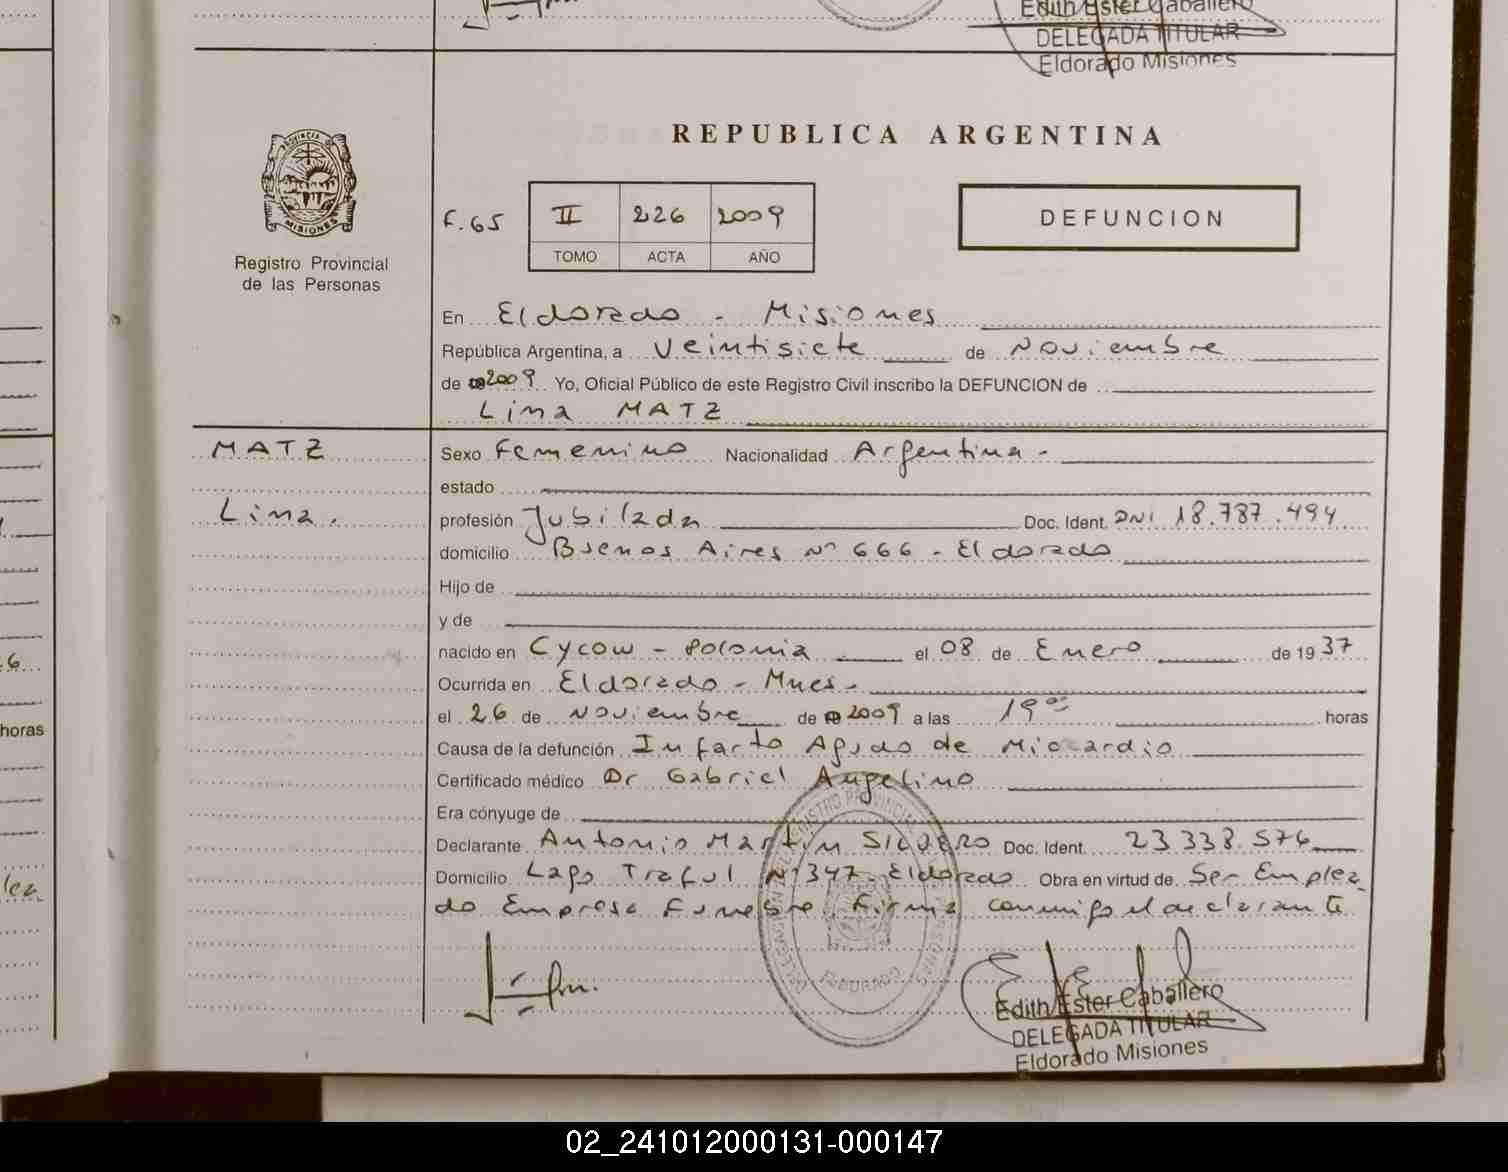 Edith Ester Caballero
DELEGADA TITULAR
Eldorado Misiones
PROVINCIA D
MISIONES
Registro Provincial
de las Personas
REPUBLICA ARGENTINA
F. 65
II 226 2009
TOMO ACTA AÑO
DEFUNCION
En Eldorado - Misiones
República Argentina, a Veintisiete de Noviembre
de 2009 Yo, Oficial Público de este Registro Civil inscribo la DEFUNCION de
Lina MATZ
MATZ
Lina.
Sexo Femenino Nacionalidad Argentina -
estado
profesión Jubilada Doc. Ident. DNI 18.787.494
domicilio Buenos Aires Nº 666 - Eldorado
Hijo de
y de
nacido en Cycow - Polonia el 08 de Enero de 1937
Ocurrida en Eldorado - Mnes -
el 26 de Noviembre de 2009 a las 19 00 horas
Causa de la defunción Infarto Agudo de Miocardio
Certificado médico Dr Gabriel Angelino
Era cónyuge de
Declarante Antonio Martin Doc. Ident. 23 338.576
Domicilio Lago Traful Nº 347 - Eldorado Obra en virtud de Ser Emplea
do Empresa Funebre. Firma conmigo el declarante
ELDORADO
Edith Ester Caballero
DELEGADA TITULAR
Eldorado Misiones
horas
02_241012000131-000147